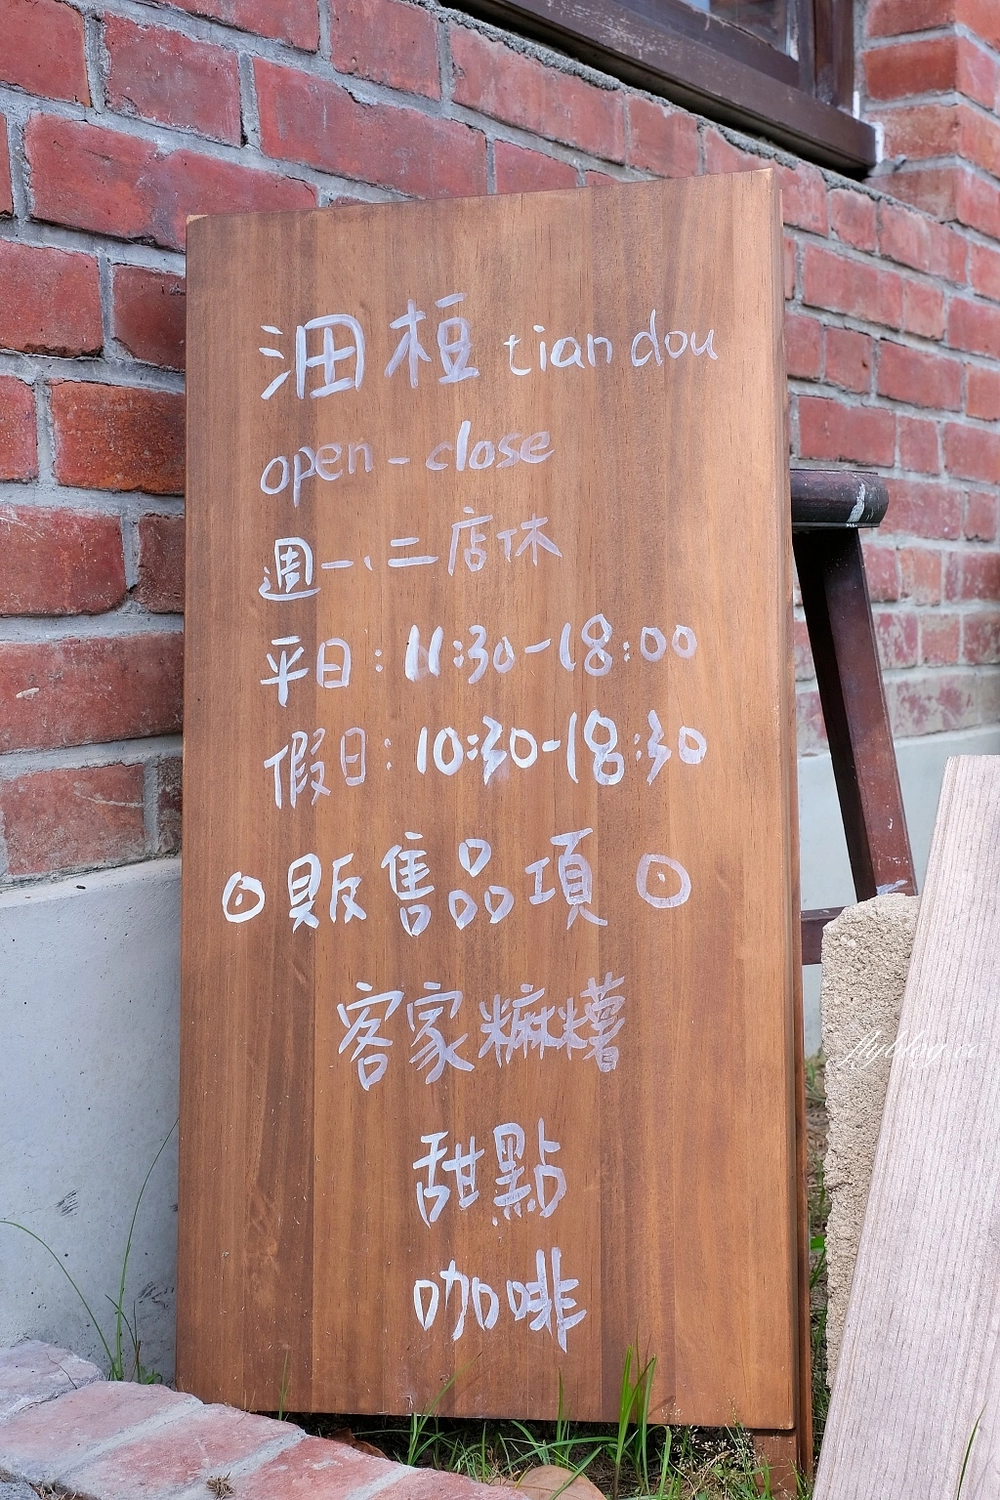 沺梪 tian dou
open - close
週一、二店休
平日：11:30-18:00
假日：10:30-18:30
⊙ 販售品項 ⊙
客家䊳糬
甜點
咖啡